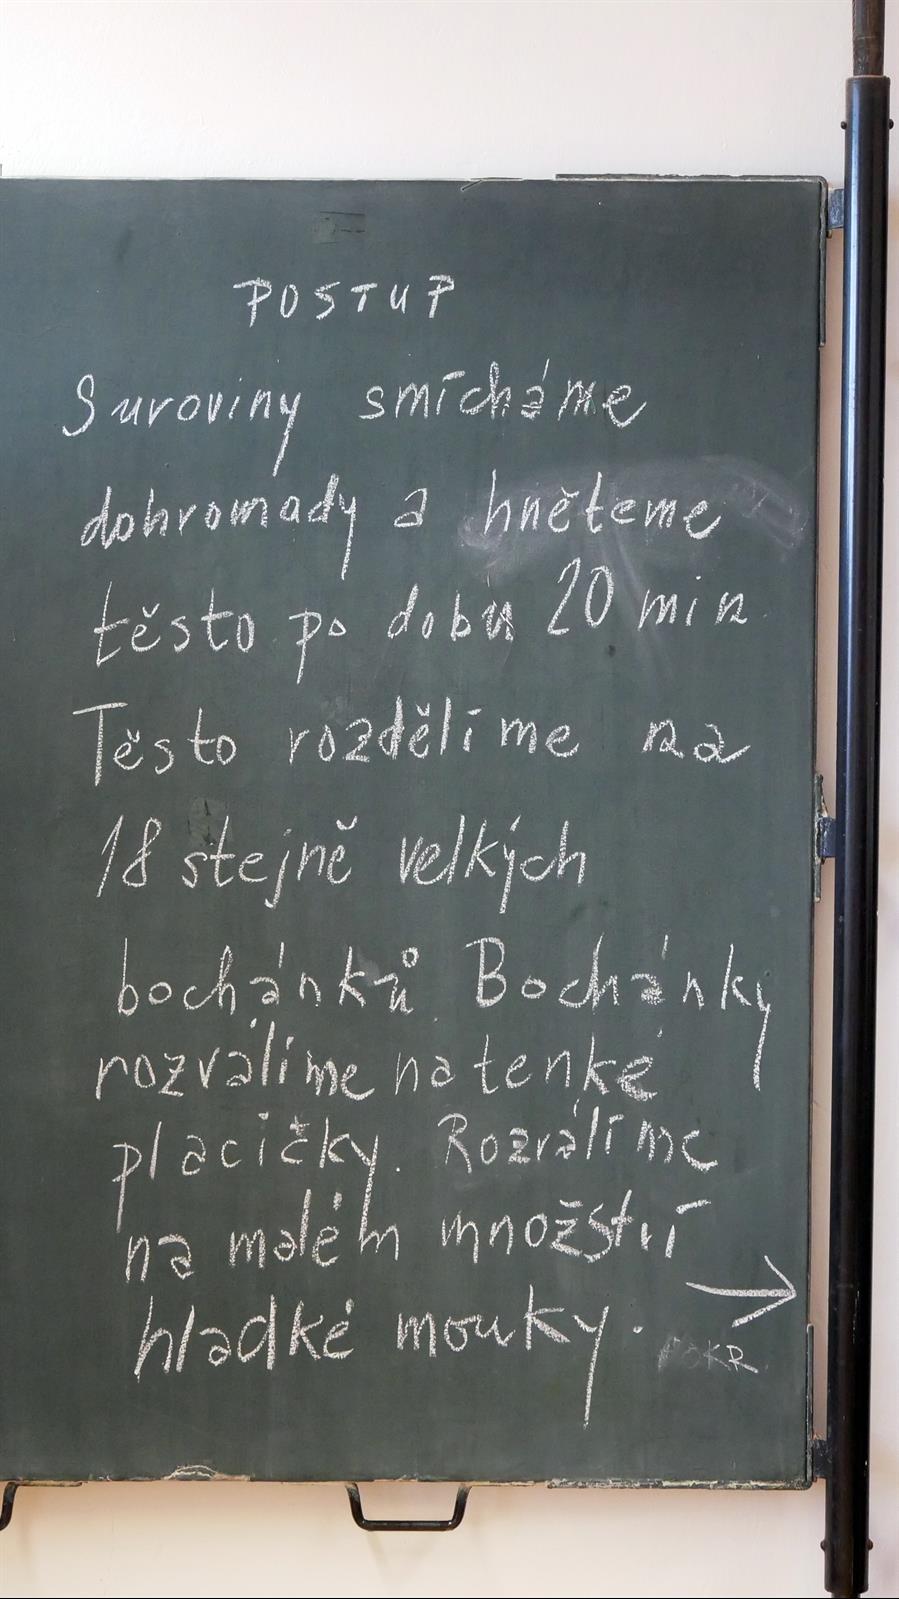 POSTUP
Suroviny smícháme
dohromady a hněteme
těsto po dobu 20 min
Těsto rozdělíme na
18 stejně velkých
bochánků. Bochánky
rozválíme na tenké
placičky. Rozválíme
na malém množství
hladké mouky. →
POKR